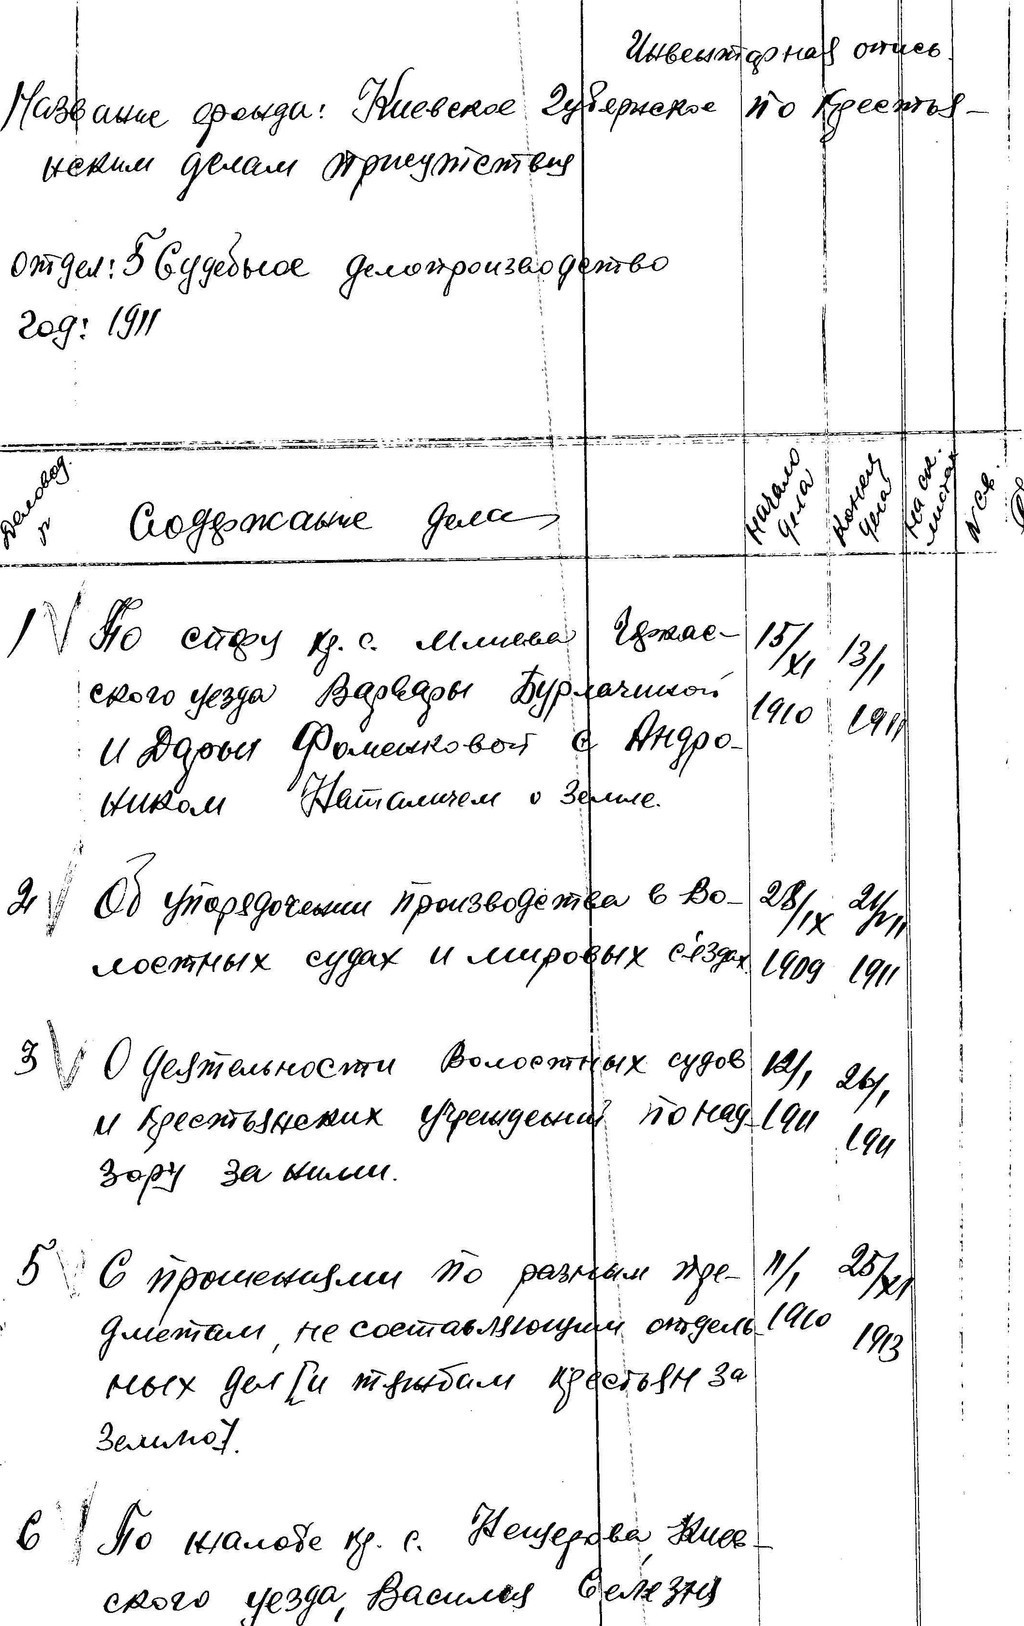 Инвентарная опись
Название фонда: Киевское Губернское по крестья-
нским делам присутствия
отдел: 5 Судебное делопроизводство
год: 1911
Деловод. №
Содержание дела
начало дела
конец дела
на ск. листах
1 По спору кр. с. Млиева Черкас-
ского уезда Варвары Бурлачиной
и Дарьи Фоменковой с Андро-
ником Наталичем о земле.
15/XI 1910
13/I 1911
2 Об упорядочении производства в во-
лостных судах и мировых съездах
28/IX 1909
1911
3 О деятельности волостных судов
и крестьянских учреждений по над-
зору за ними.
12/I 1911
26/I 1911
5 С прошениями по разным пре-
дметам, не составляющим отдель-
ных дел [и тяжбам крестьян за
землю].
11/I 1910
25/XI 1913
6 По жалобе кр. с. Кощеева, Киев-
ского уезда, Василия Селезня